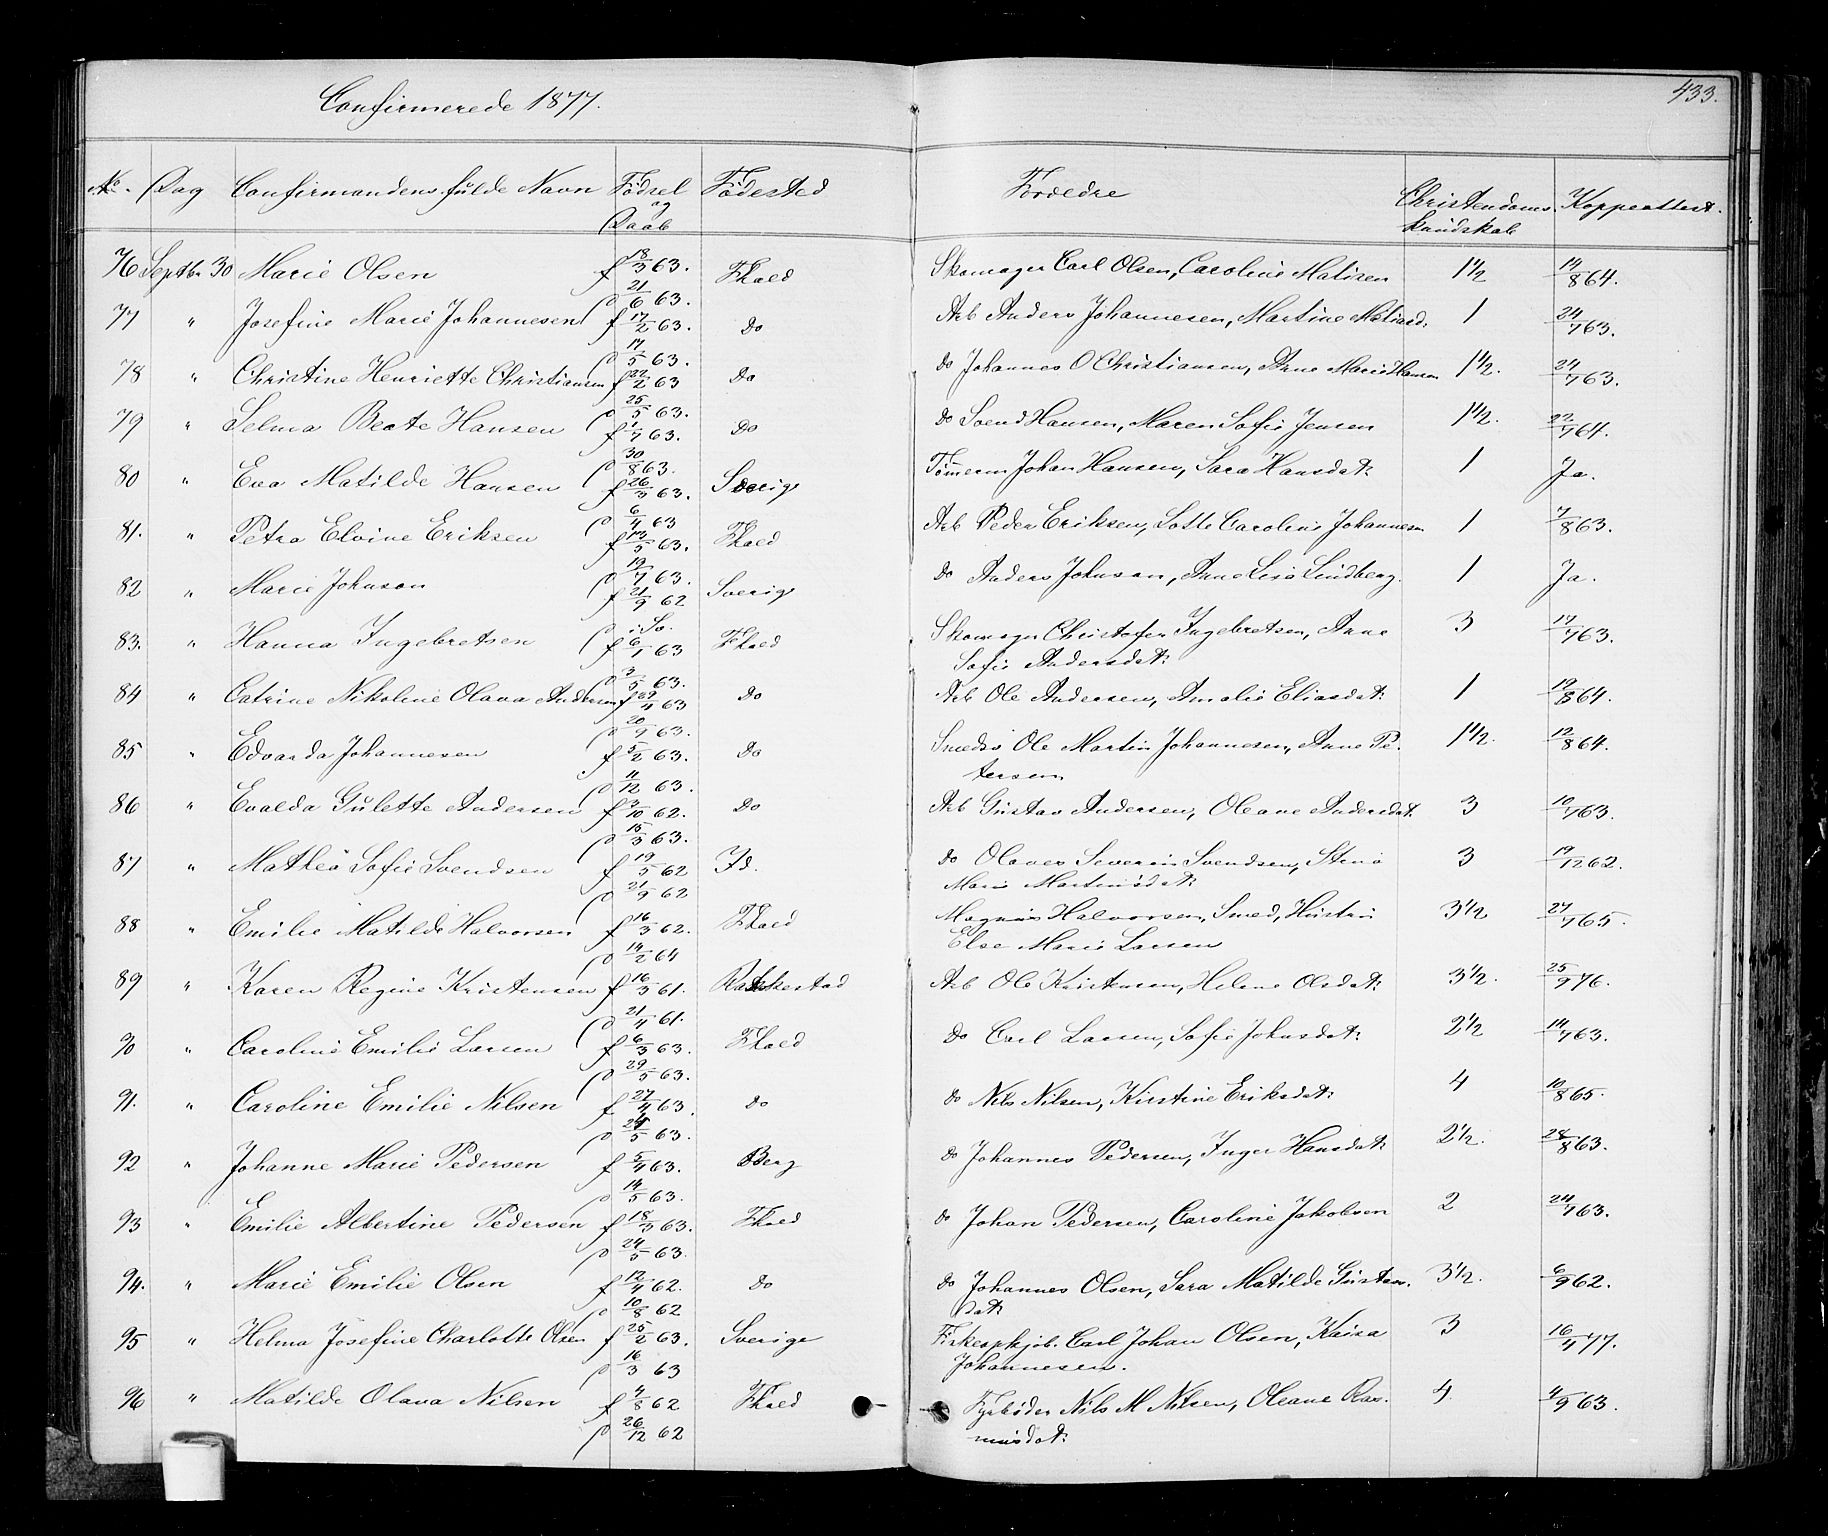 Confirmerede 1877.
433.
No. Dag Confirmandens fulde Navn Fødsel og Daab Fødested Forældre Christendoms kundskab Koppeattest.
76 Septbr 30 Marie Olsen f 18/3 63. D 21/6 63. Fhald Skomager Carl Olsen, Caroline Matisen 1 1/2 14/8 64.
77 " Josefine Marie Johannesen f 17/2 63. D 17/5 63. Do Arb Anders Johannesen, Martine Matiasd. 1 24/7 63.
78 " Christine Henriette Christiansen f 22/2 63 D 25/5 63. Do Do Johannes O Christiansen, Anne Marie Hansen 1 1/2. 24/7 63.
79 " Selma Beate Hansen f 1/7 63. D 30/8 63. Do Do Svend Hansen, Maren Sofie Jensen 1 1/2. 22/7 64.
80 " Eva Matilde Hansen f 26/3 63. D 6/4 63 Sverige Tømerm Johan Hansen, Sara Hansdat: 1 Ja.
81. " Petra Elvine Eriksen f 13/5 63. D 19/7 63. Fhald Arb Peder Eriksen, Lotte Caroline Johannesen 1 7/8 63.
82 " Marie Johnson f 21/9 62 D i Sv. Sverige Do Anders Johnson, Anne Lisa Lindberg. 1 Ja.
83. " Hanna Ingebretsen f 6/1 63 D 3/5 63. Fhald Skomager Christofer Ingebretsen, Anne
Sofie Andersdat: 3 17/7 63.
84 " Catrine Nikoline Olava Andersen f 29/4 63 D 20/9 63. Do Arb Ole Andersen, Amalie Eliasdat: 1 19/8 64.
85 " Edvarda Johannesen f 5/2 63. D 11/12 63. Do Smeds Ole Martin Johannesen, Anne Pe-
tersen 1 1/2. 12/8 64.
86 " Evalda Gulette Andersen f 3/10 62. D 15/3 63. Do Arb Gustav Andersen, Oleane Andersdat. 3 10/7 63.
87 " Mathea Sofie Svendsen f 19/5 62 D 21/9 62 Id. Do Olaves Severin Svendsen, Stina
Marie Martinsdat: 3 19/12 62.
88 " Emilie Matilde Halvorsen f 16/3 62. D 14/2 64 Fhald Magnus Halvorsen, Smed, Hustru
Else Marie Larsen 3 1/2 27/7 65.
89 " Karen Regine Kristensen f 16/3 61. D 21/4 61. Rakkestad Arb Ole Kristensen, Helene Olsdat: 3 1/2. 25/9 76.
90 " Caroline Emilie Larsen f 6/3 63. D 29/5 63. Fhald Do Carl Larsen, Sofie Johnsdat: 2 1/2 14/7 63.
91. " Caroline Emilie Nilsen f 27/4 63. D 24/5 63. Do Do Nils Nilsen, Kirstine Eriksdat: 4 10/8 65.
92 " Johanne Marie Pedersen f 5/4 63. D 14/5 63. Berg Do Johannes Pedersen, Inger Hansdat: 2 1/2. 28/8 63.
93 " Emilie Albertine Pedersen f 18/3 63. D 24/5 63. Fhald Do Johan Pedersen, Caroline Jakobsen 2 24/7 63.
94. " Marie Emilie Olsen f 12/4 62. D 10/8 62 Do Do Johannes Olsen, Sara Matilde Gustav.
dat: 3 1/2. 6/9 62.
95 " Helma Josefine Charlotte Olsen f 25/2 63. D 16/3 63 Sverige Fiskeopkjøb. Carl Johan Olsen, Kaisa
Johannesen. 3 16/4 77.
96 " Matilde Olava Nilsen f 4/8 62 D 26/12 62 Fhald Fyrbøder Nils M Nilsen, Oleane Ras-
musdat: 4 4/9 63.